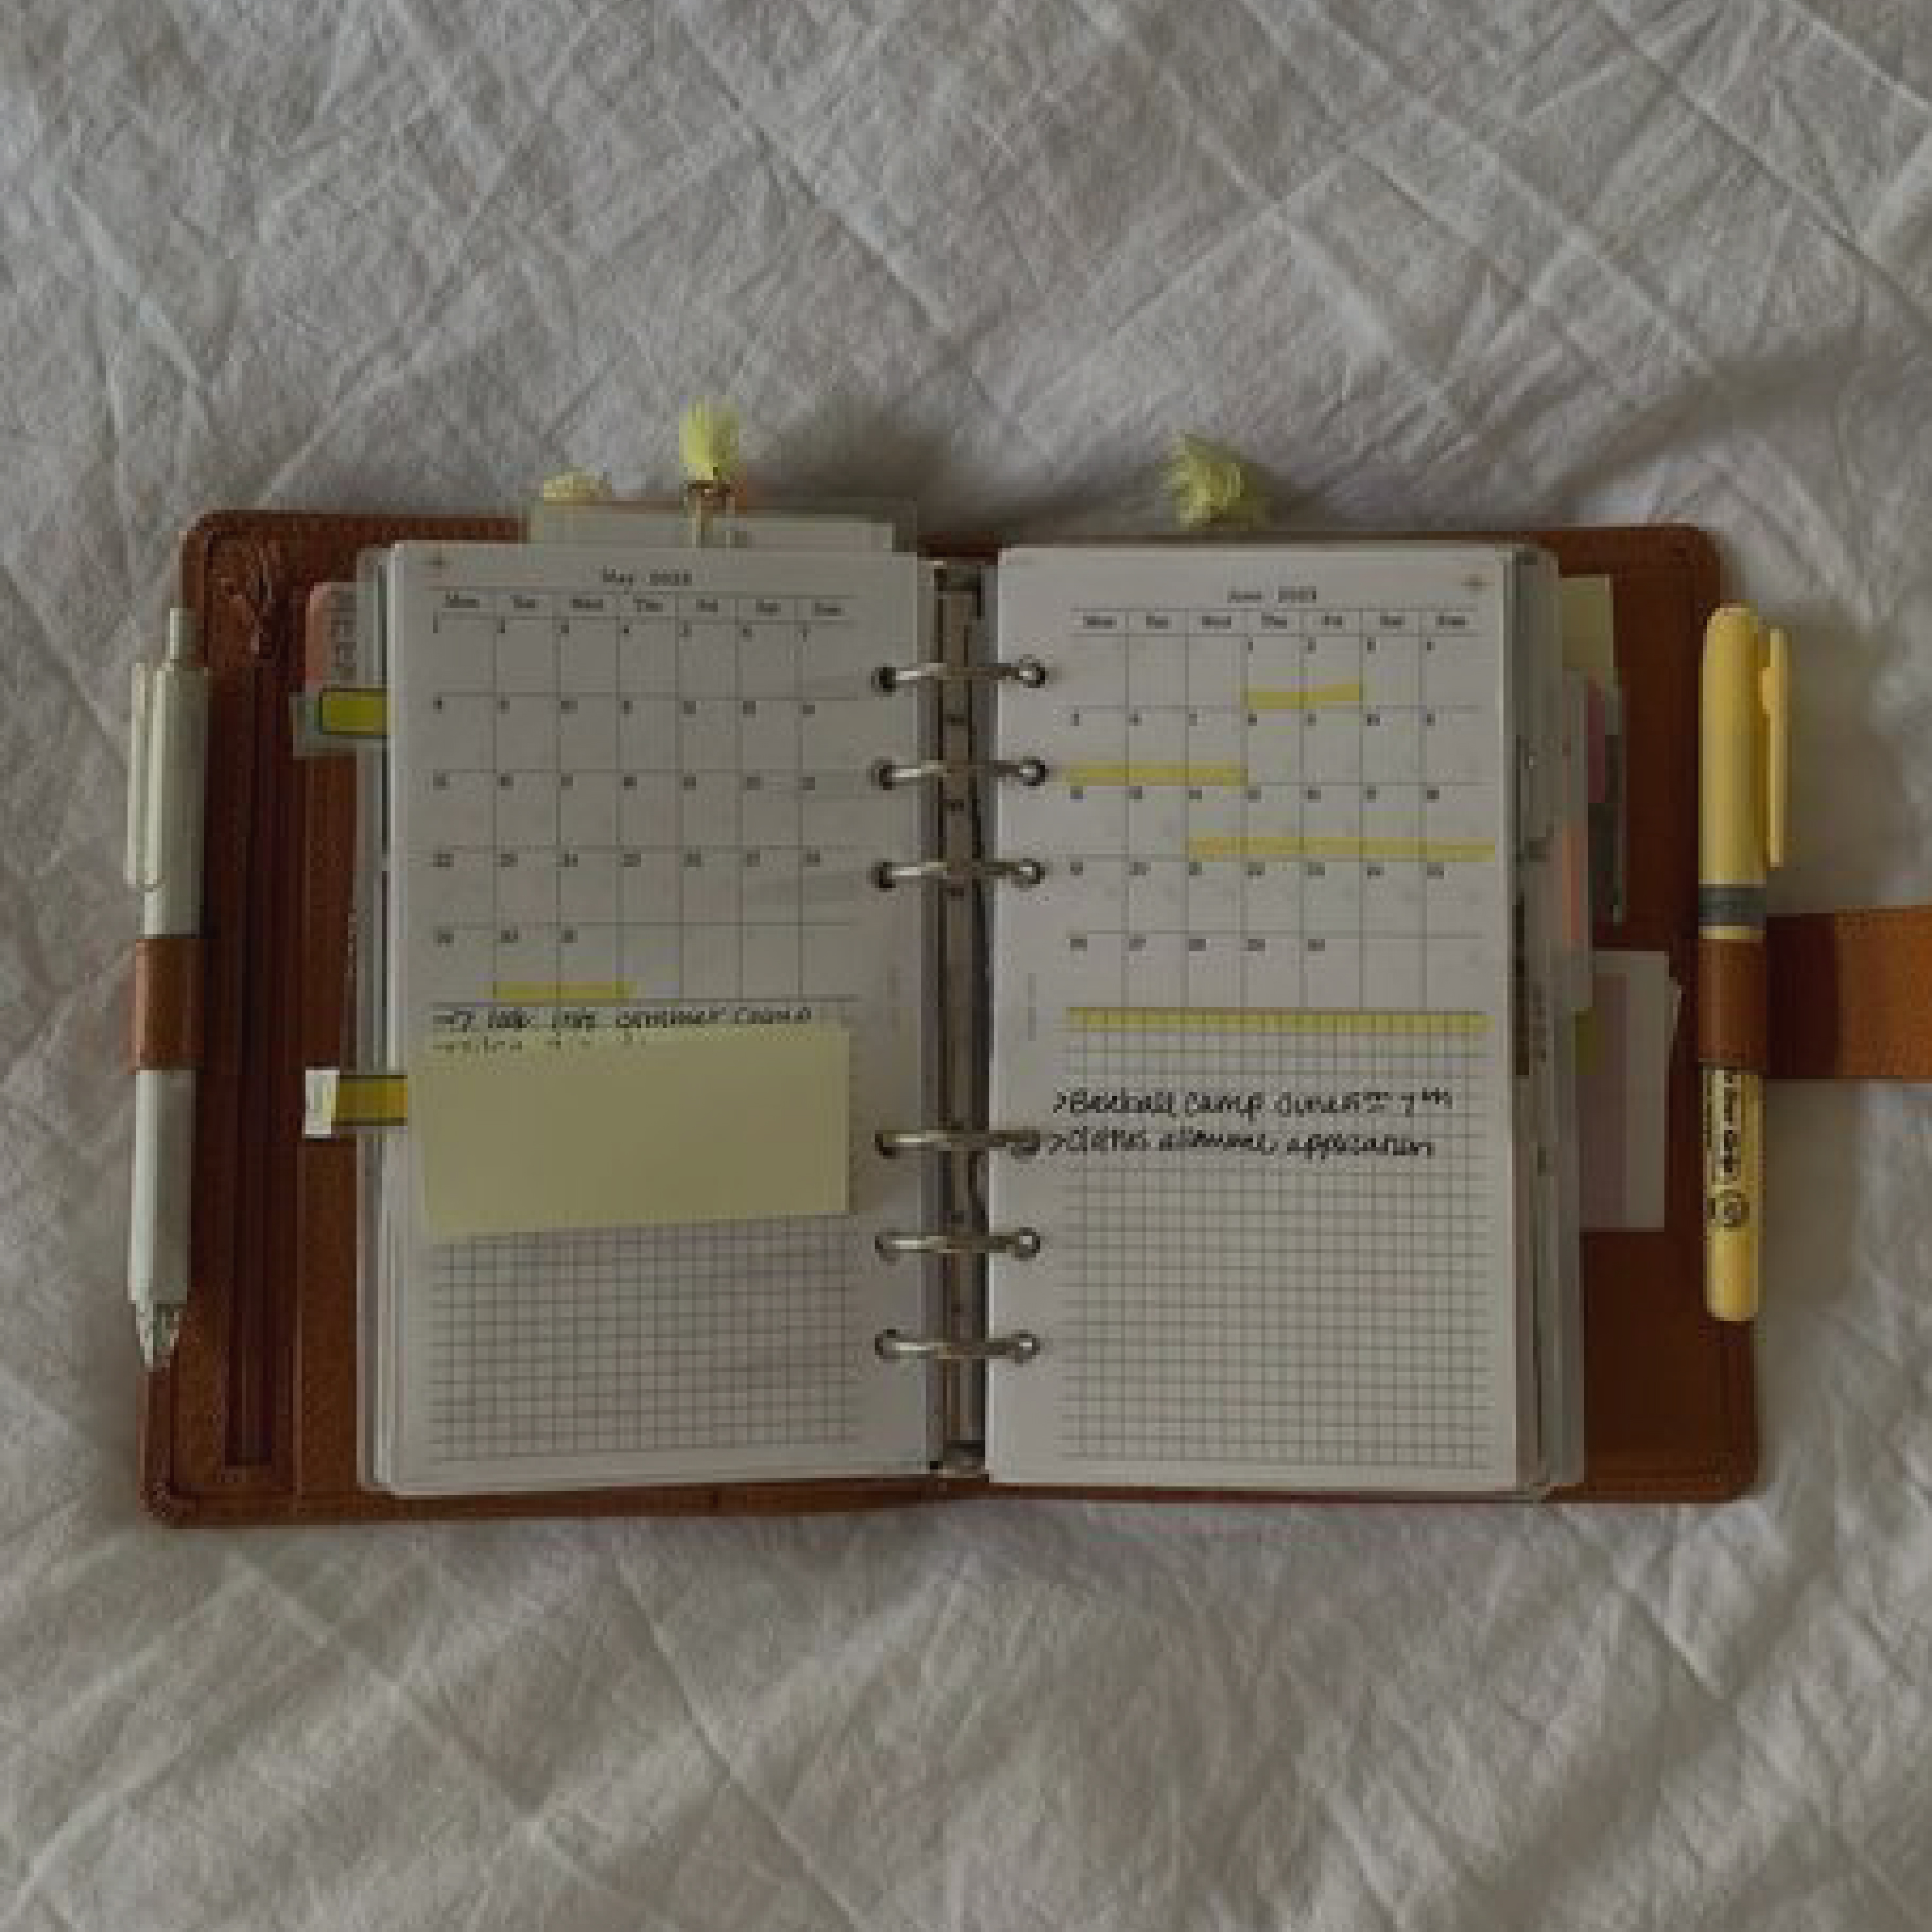 May 2023
Mon Tue Wed Thu Fri Sat Sun
1 2 3 4 5 6 7
8 9 10 11 12 13 14
15 16 17 18 19 20 21
22 23 24 25 26 27 28
29 30 31
look into summer camp
June 2023
Mon Tue Wed Thu Fri Sat Sun
1 2 3 4
5 6 7 8 9 10 11
12 13 14 15 16 17 18
19 20 21 22 23 24 25
26 27 28 29 30
>Baseball camp 7th
>clothes allowance application